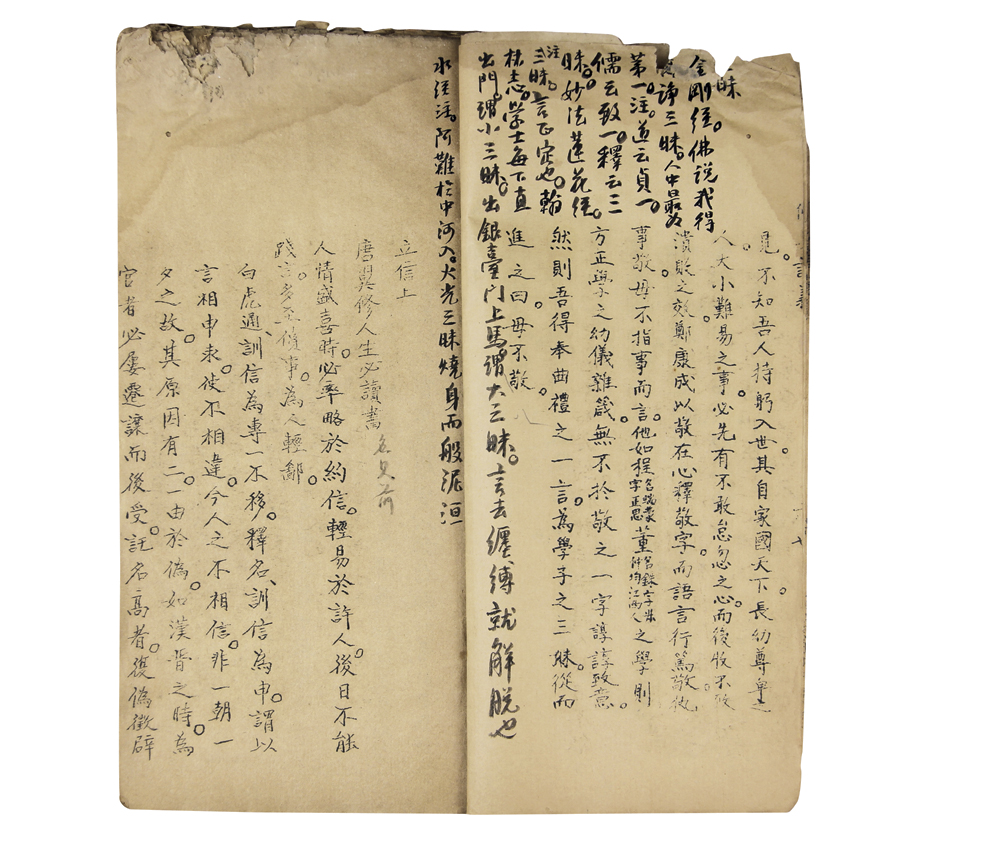 覓。不知吾人持躬入世其自家國天下。長幼尊卑之
人大小難易之事。必先有不敢怠忽之心。而後收不致
潰敗之效。鄭康成以敬在心釋敬字。而語言行篤敬
事敬。毋不指事而言。他如程名端蒙字正思董名銖字叔之學則
方正學之幼儀雜箴。無不於敬之一字諄諄致意。
然則吾得奉曲禮之一言。為學子之三昧。從而
進之曰。毋不敬。
三昧
金剛經。佛說我得
諍三昧。人中最為
第一。注。道云貞一。
儒云致一。釋云三
昧。妙法蓮花經。
注三昧。言正定也。翰
林志。學士每下直
出門。謂小三昧。出銀臺门上馬。謂大三昧。言去纏縛就解脫也
水經注。阿難於中河入。火光三昧燒身而般泥洹
立信上
唐翼修人生必讀書
人情盛喜時。必率略於約信。輕易於許人。後日不能
踐言。多至僨事。為人輕鄙。
白虎通、訓信為專一不移。釋名、訓信為申。謂以
言相申束。使不相違。今人之不相信。非一朝一
夕之故。其原因有二。一由於偽。如漢晉之時。為
官者必屢遷讓而後受。託名高者。復偽徵辟